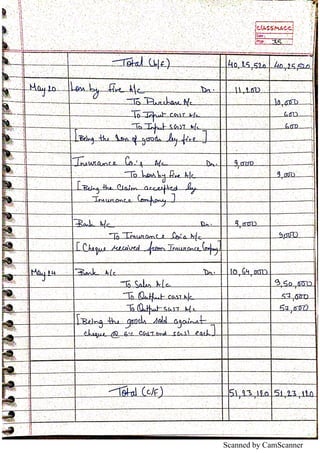 classmate
Date
Page 35
Total (b/f) 40,25,520 40,25,520
May 20 Loss by fire A/c Dr. 11,200
To Purchase A/c 10,000
To Input CGST A/c 600
To Input SGST A/c 600
[Being the loss of goods by fire]
Insurance Co.'s A/c Dr. 9,000
To Loss by fire A/c 9,000
[Being the Claim accepted by
Insurance Company]
Bank A/c Dr. 9,000
To Insurance Co's A/c 9,000
[Cheque received from Insurance Company]
May 24 Bank A/c Dr. 10,64,000
To Sales A/c 9,50,000
To Output CGST A/c 57,000
To Output SGST A/c 57,000
[Being the goods sold against
cheque @ 6% CGST and SGST each]
Total (C/F) 51,23,120 51,23,120
Scanned by CamScanner